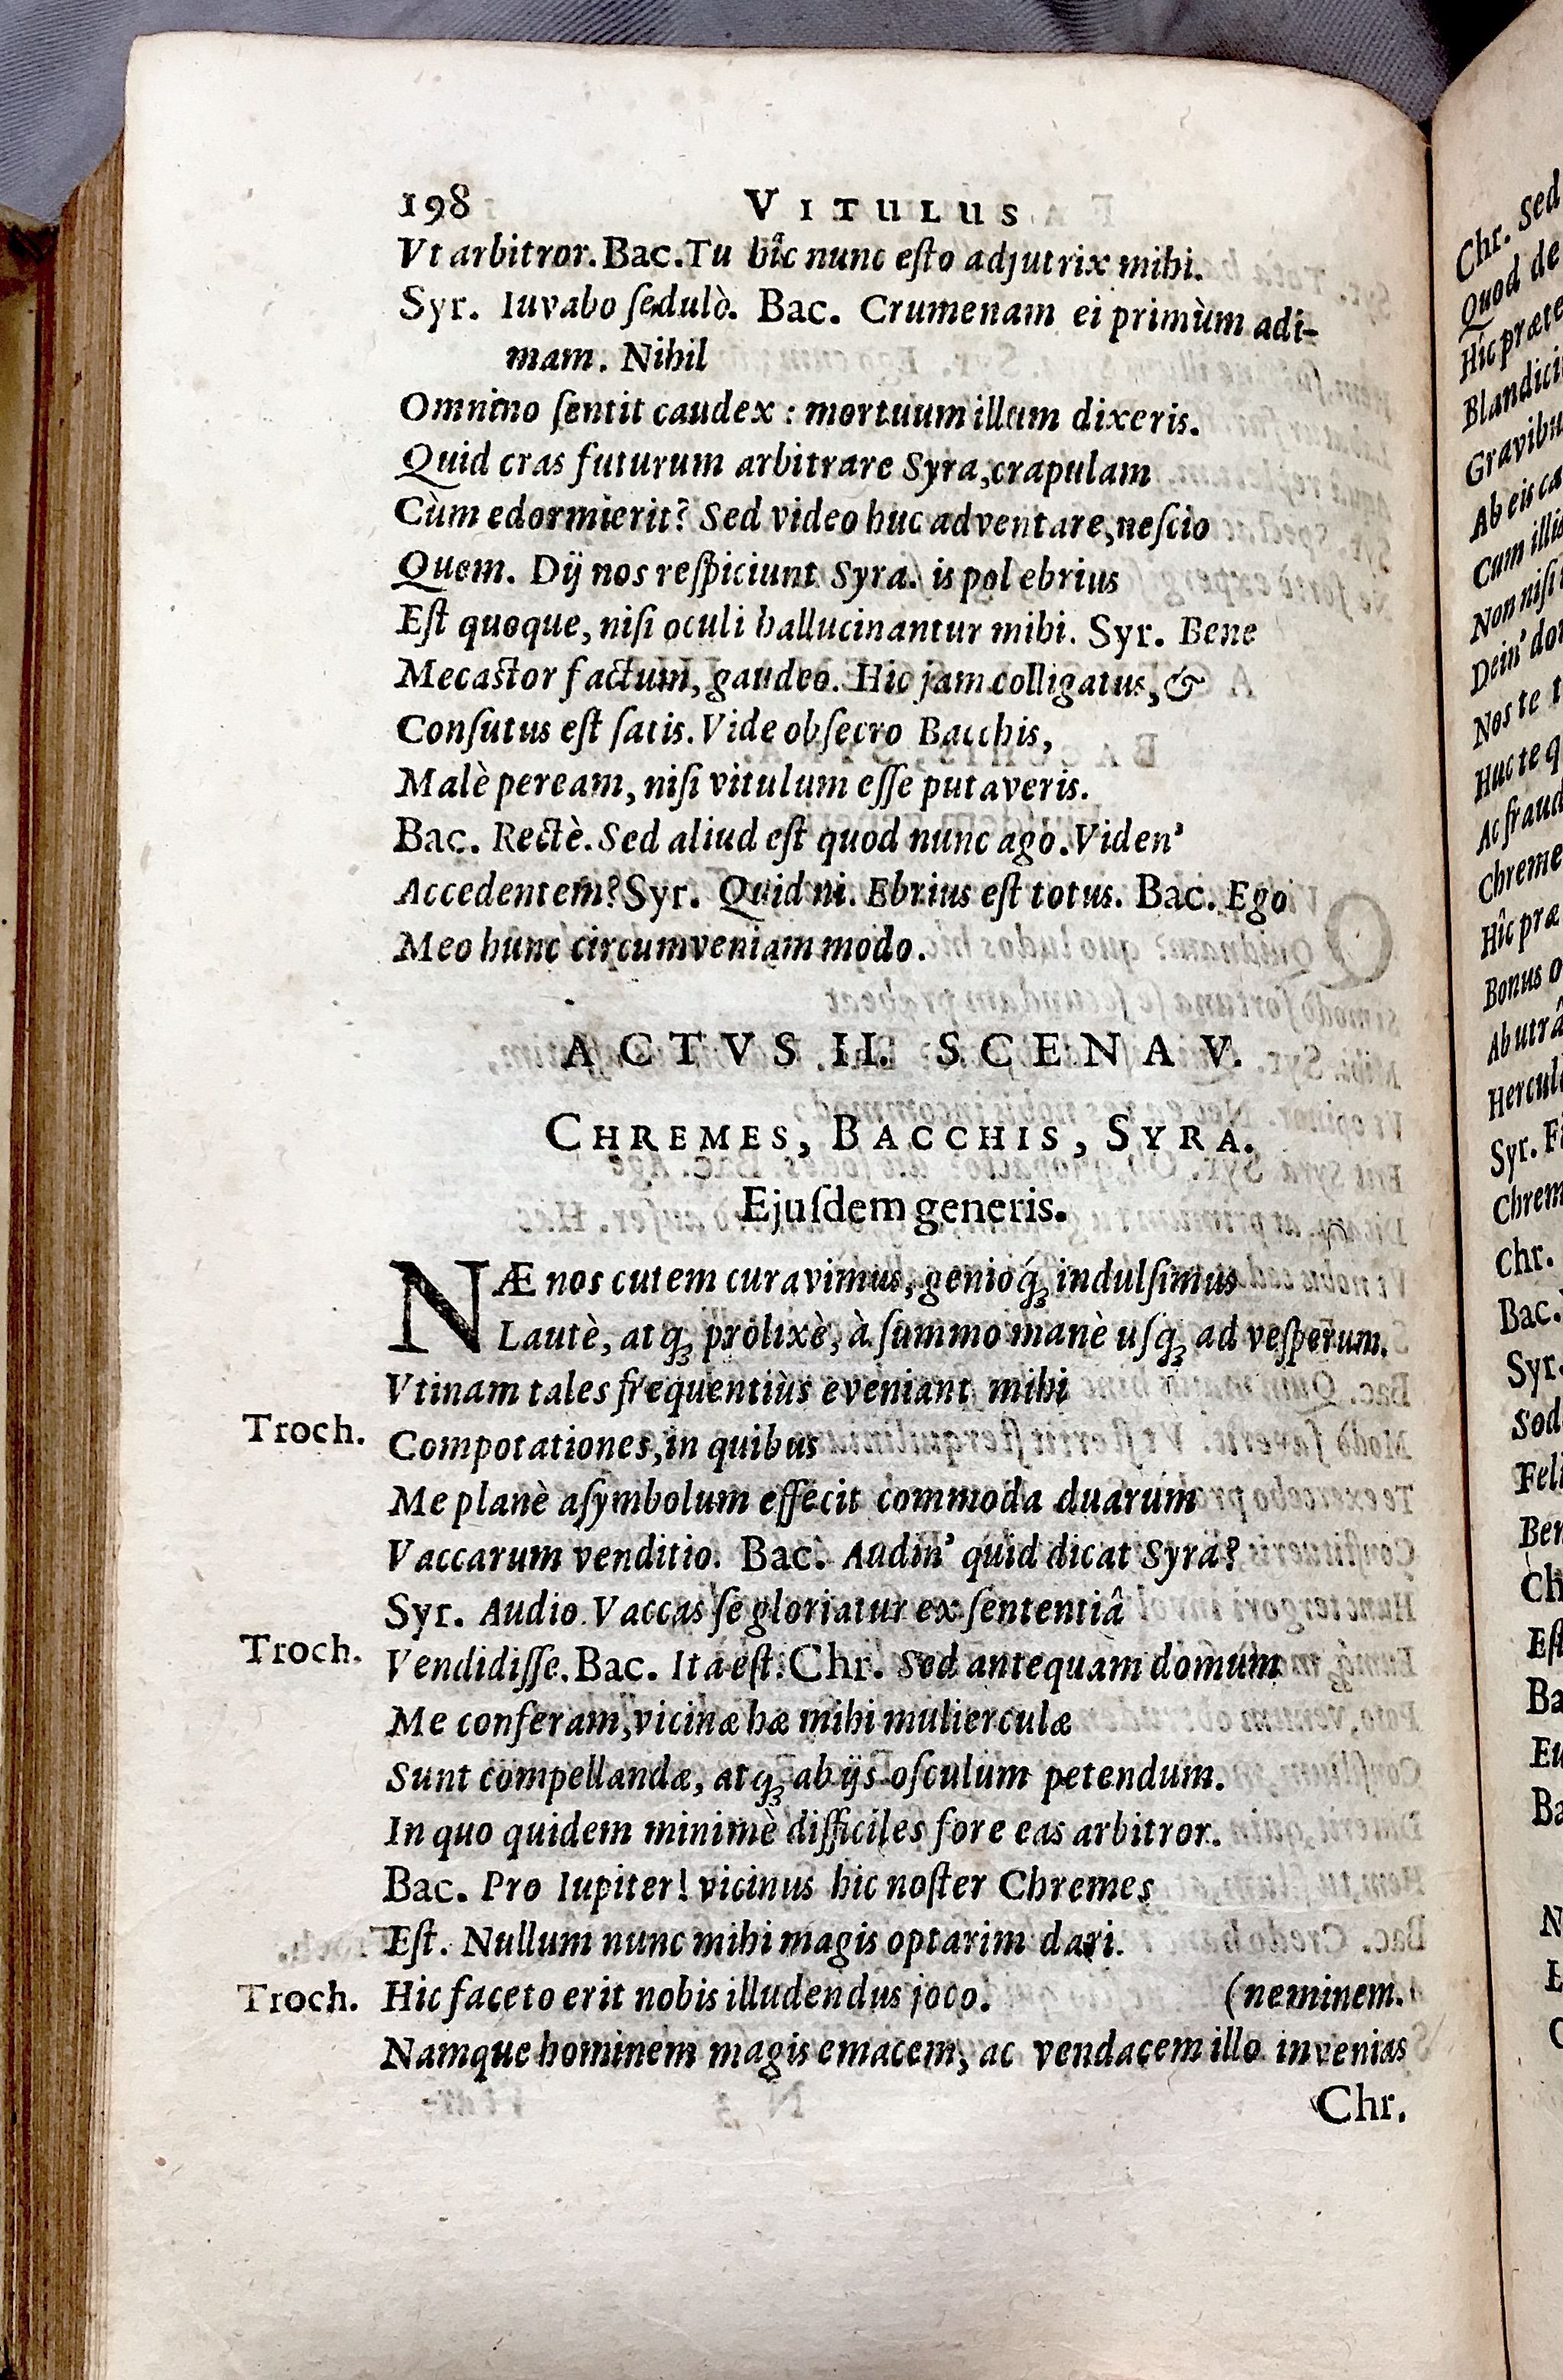 198 VITULUS
Vt arbitror. Bac. Tu hîc nunc eſto adjutrix mihi.
Syr. Iuvabo ſedulò. Bac. Crumenam ei primùm adi-
mam. Nihil
Omnino ſentit caudex : mortuum illum dixeris.
Quid cras futurum arbitrare Syra, crapulam
Cùm edormierit? Sed video huc adventare, neſcio
Quem. Dij nos reſpiciunt Syra. is pol ebrius
Eſt quoque, niſi oculi hallucinantur mihi. Syr. Bene
Mecastor factum, gaudeo. Hic jam colligatus, &
Conſutus eſt ſatis. Vide obſecro Bacchis,
Malè peream, niſi vitulum eſſe putaveris.
Bac. Rectè. Sed aliud eſt quod nunc ago. Viden'
Accedentem? Syr. Quid ni. Ebrius eſt totus. Bac. Ego
Meo hunc circumveniam modo.
ACTVS II. SCENA V.
CHREMES, BACCHIS, SYRA.
Ejuſdem generis.
NÆ nos cutem curavimus, genioq́ꝫ indulſimus
Lautè, atqꝫ prolixè, à ſummo manè uſqꝫ ad veſperum.
Vtinam tales frequentiùs eveniant mihi
Troch. Compotationes, in quibus
Me planè aſymbolum effecit commoda duarum
Vaccarum venditio. Bac. Audin' quid dicat Syra?
Syr. Audio. Vaccas ſe gloriatur ex ſententiâ
Troch. Vendidiſſe. Bac. Ita eſt. Chr. Sed antequam domum
Me conferam, vicinæ hæ mihi mulierculæ
Sunt compellandæ, atqꝫ ab ijs oſculum petendum.
In quo quidem minimè difficiles fore eas arbitror.
Bac. Pro Iupiter! vicinus hic noſter Chremes
Eſt. Nullum nunc mihi magis optarim dari.
Troch. Hic faceto erit nobis illudendus joco. (neminem.
Namque hominem magis emacem, ac vendacem illo invenias
Chr.
Chr. Sed
Quod de
Blandici
Gravibu
Ab eis ca
Cum illis
Non niſi
Nos te
Huc te q
Ac fraud
Chreme
Bonus o
Ab utrâ
Syr.
Chrem
Chr.
Bac.
Syr.